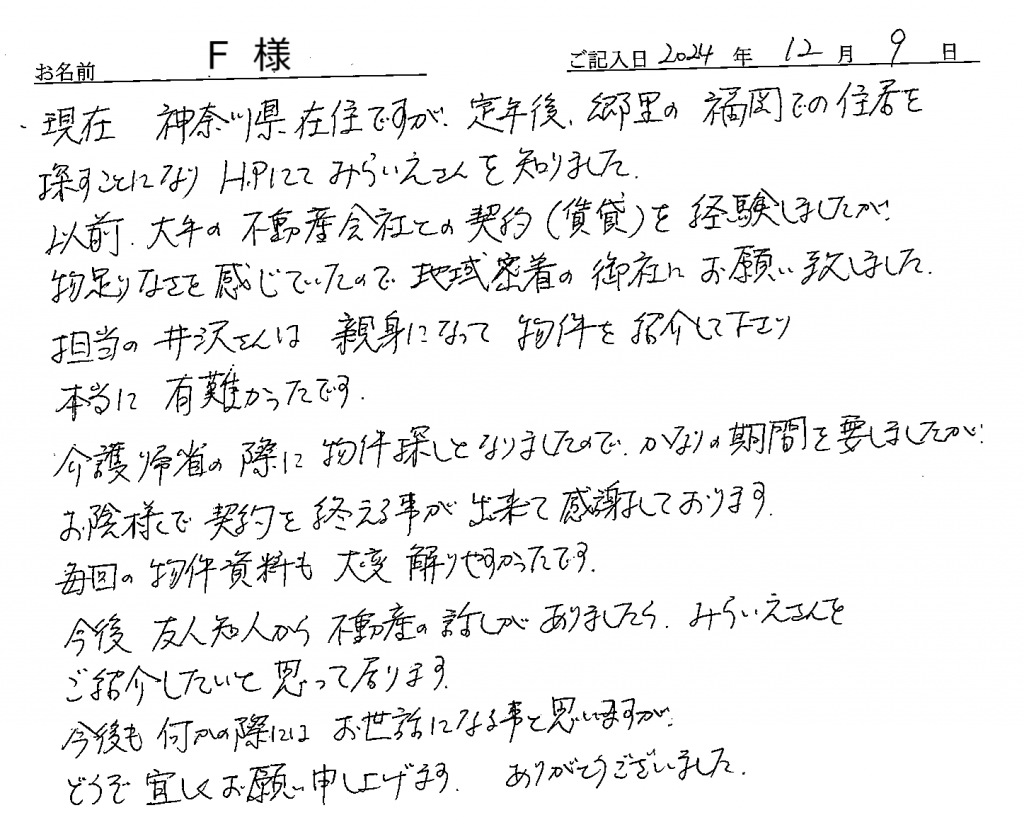 お名前 F 様 ご記入日 2024 年 12 月 9 日
現在 神奈川県在住ですが、定年後、郷里の福岡での住居を
探すことになり H.Pにて みらいえさんを知りました。
以前、大手の不動産会社との契約(賃貸)を経験しましたが、
物足りなさを感じていたので、地域密着の御社にお願い致しました。
担当の井沢さんは親身になって物件を紹介して下さり
本当に有難かったです。
介護帰省の際に物件探しとなりましたので、かなりの期間を要しましたが、
お陰様で契約を終える事が出来て感謝しております。
毎回の物件資料も大変解りやすかったです。
今後友人知人から不動産の話しがありましたら、みらいえさんを
ご紹介したいと思って居ります。
今後も何かの際にはお世話になる事と思いますが、
どうぞ宜しくお願い申し上げます。 ありがとうございました。